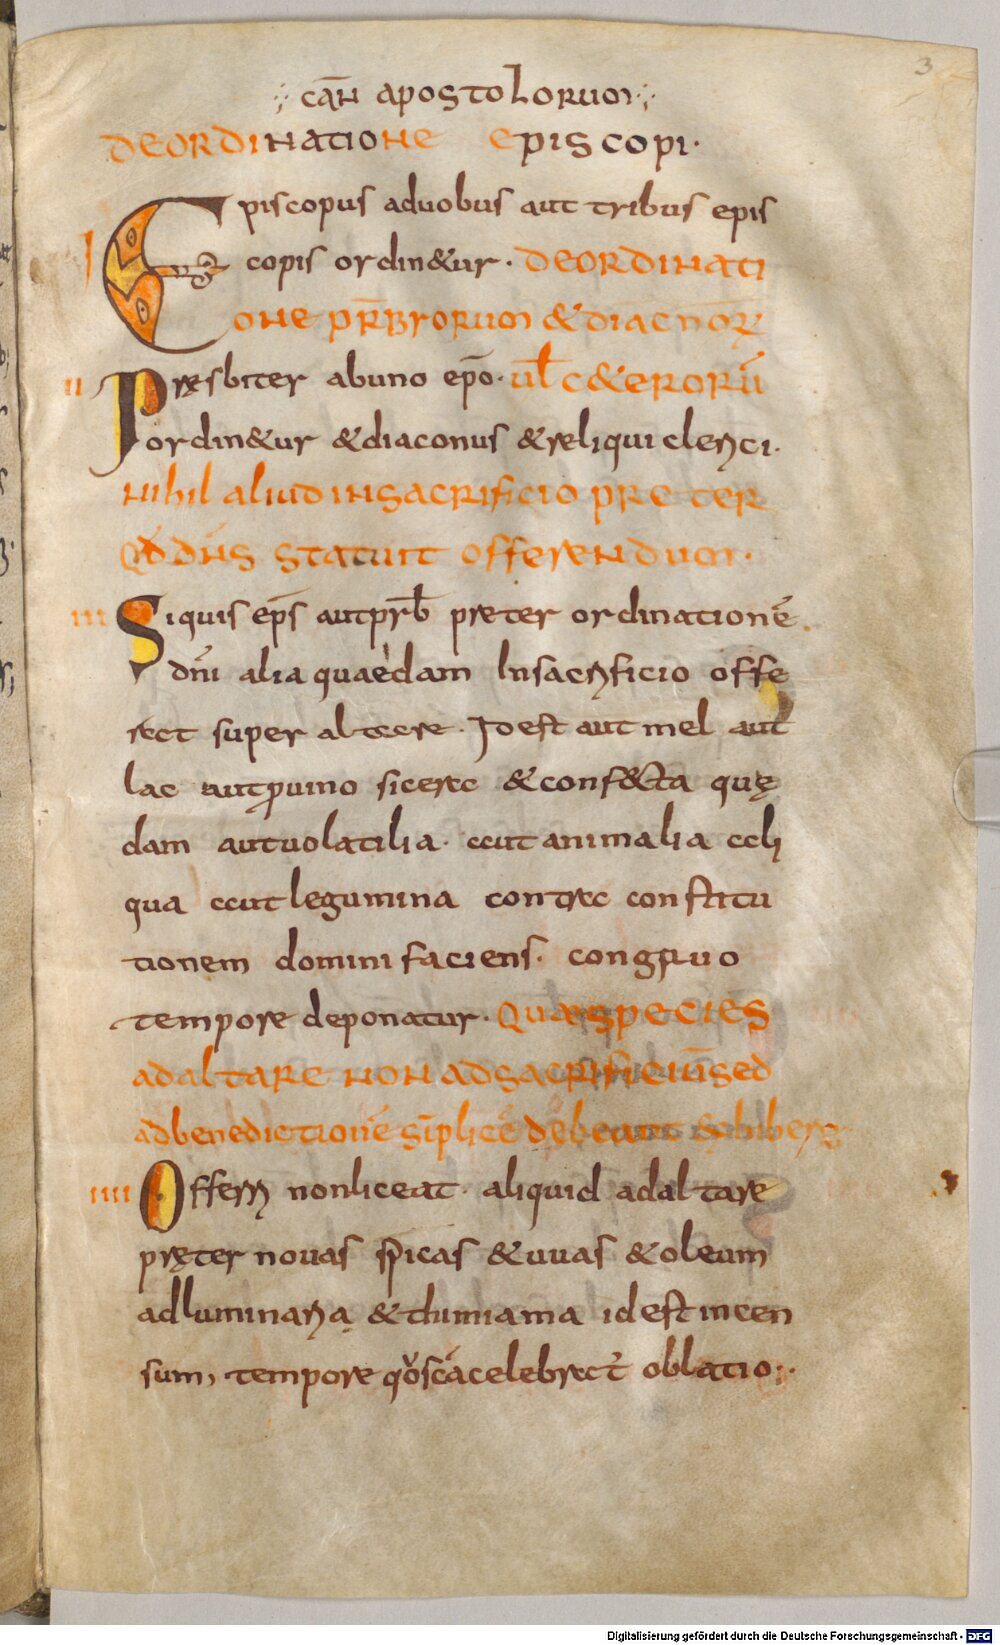 3
cān apostolorum
DEORDINATIONE EPISCOPI·
Episcopus aduobus aut tribus epis
I copis ordin&ur· DEORDINATI
ONE PRB̄YORUM & DIACNOR̄
II Pręsbiter abuno ep̄o· ul̄ c&eroru̅
ordin&ur &diaconus &reliqui clerici·
Nihil aliud insacrificio preter
Qd̄ dn̄s statuit offerendum·
III Siquis ep̄s autprb̄ pręter ordinatione̅
dn̄i alia quaedam Insacrificio offe
rat super altare· Idest aut mel aut
lac autpuino sicera &conf&ta quę
dam autuolatilia· aut animalia ali
qua aut legumina contra constitu
tionem domini faciens· congruo
tempore deponatur· Quaespecies
adaltare non adsacrificiu̅ sed
adbenedictione̅ si̅plice̅ debeant exhiberi
IIII Offerri nonliceat· aliquid adaltare
pręter nouas spicas &uuas &oleum
adluminaria &thimiama idest incen
sum, tempore qo̅ sc̄a celebrat᷑ oblatio;·
Digitalisierung gefördert durch die Deutsche Forschungsgemeinschaft - DFG